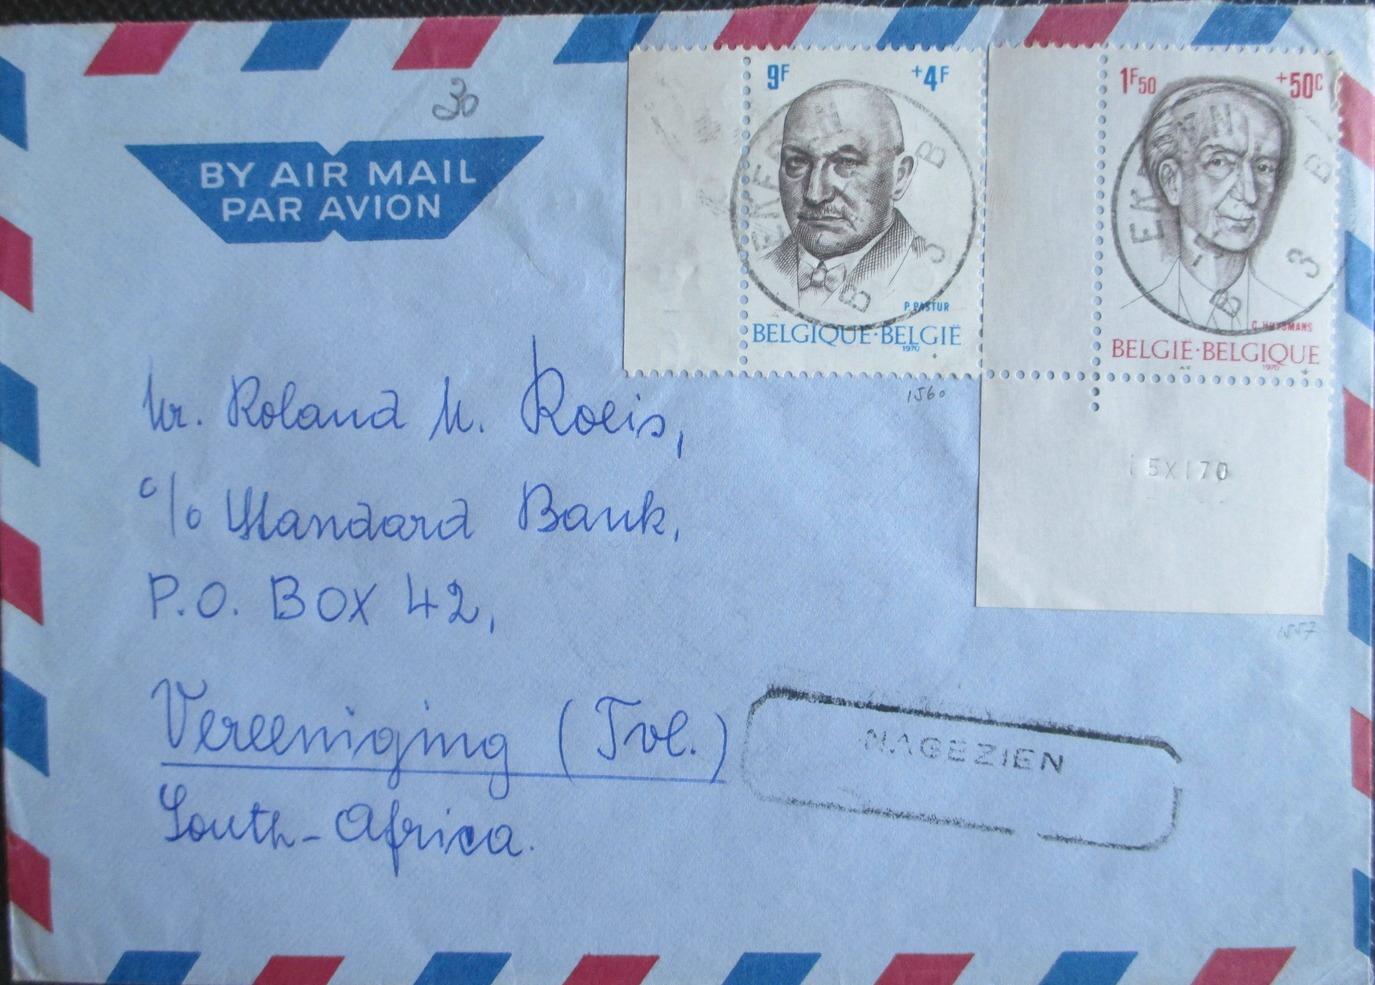 30
BY AIR MAIL
PAR AVION
9F +4F
P. PASTUR
BELGIQUE·BELGIË
1970
1F50 +50C
C. HUYSMANS
BELGIË·BELGIQUE
1970
EKE
B 3 B
EK
B 3 B
1560
15XI70
1557
Mr. Roland M. Roeis,
c/o Standard Bank,
P.O. BOX 42,
Vereeniging (Tvl.)
South-Africa.
NAGEZIEN